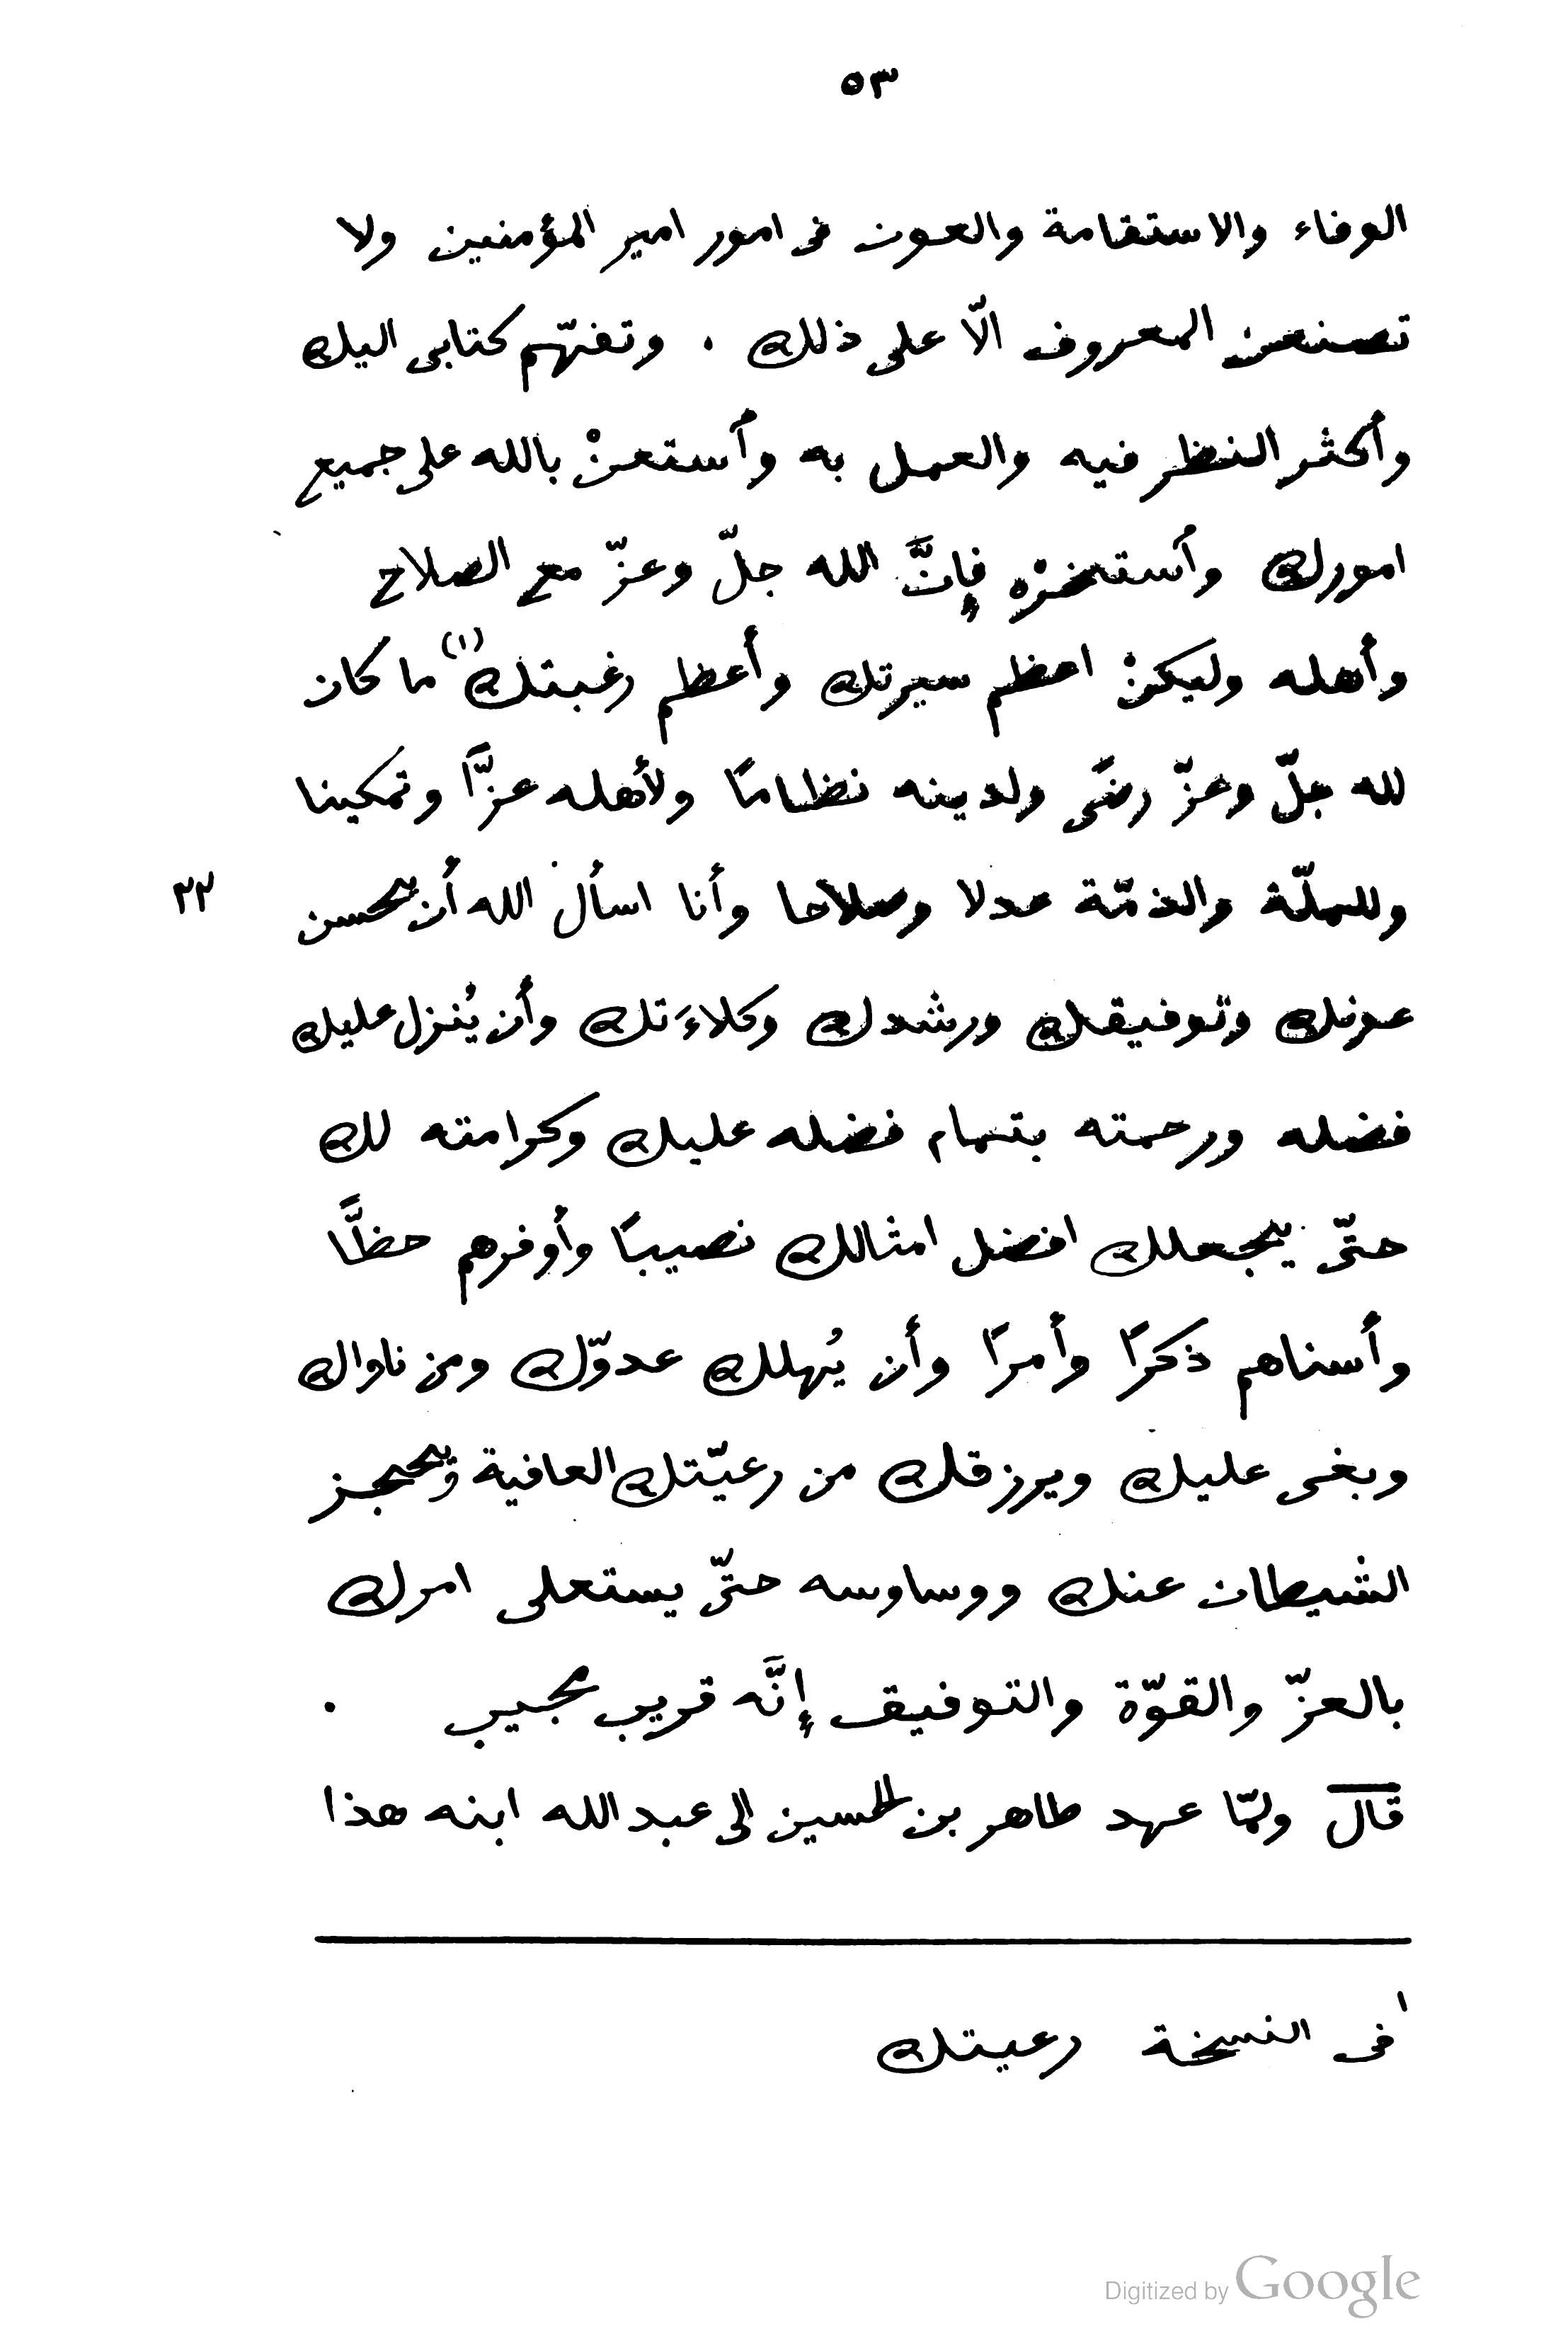 ٥٣
الوفاء والاستقامة والعون فى امور امير المؤمنين ولا
تصنعن المعروف الّا على ذلك . وتفهّم كتابى اليك
وأكثر النظر فيه والعمل به وأستعنْ بالله على جميع
امورك وأستخرْه فإنَّ الله جلّ وعزّ مع الصلاح
وأهله وليكنْ اعظم سيرتك وأعظم رغبتك (١) ما كان
لله جلّ وعزّ رضًى ولدينه نظامًا ولأهله عزًّا وتمكينا
وللملّة والذمّة عدلا وصلاحا وأنا اسأل الله أن يحسن ٢٢
عونك وتوفيقك ورشدك وكلاءَتك وأن يُنزل عليك
فضله ورحمته بتمام فضله عليك وكرامته لك
حتّى يجعلك افضل امثالك نصيبًا وأوفرهم حظًّا
وأسناهم ذكرًا وأمرًا وأن يُهلك عدوّك ومن ناواك
وبغى عليك ويرزقك من رعيّتك العافية ويحجز
الشيطان عنك ووساوسه حتّى يستعلى امرك
بالعزّ والقوّة والتوفيق إنَّه قريب مجيب .
قال ولمّا عهد طاهر بن الحسين الى عبد الله ابنه هذا
١ فى النسخة رعيتك
Digitized by Google